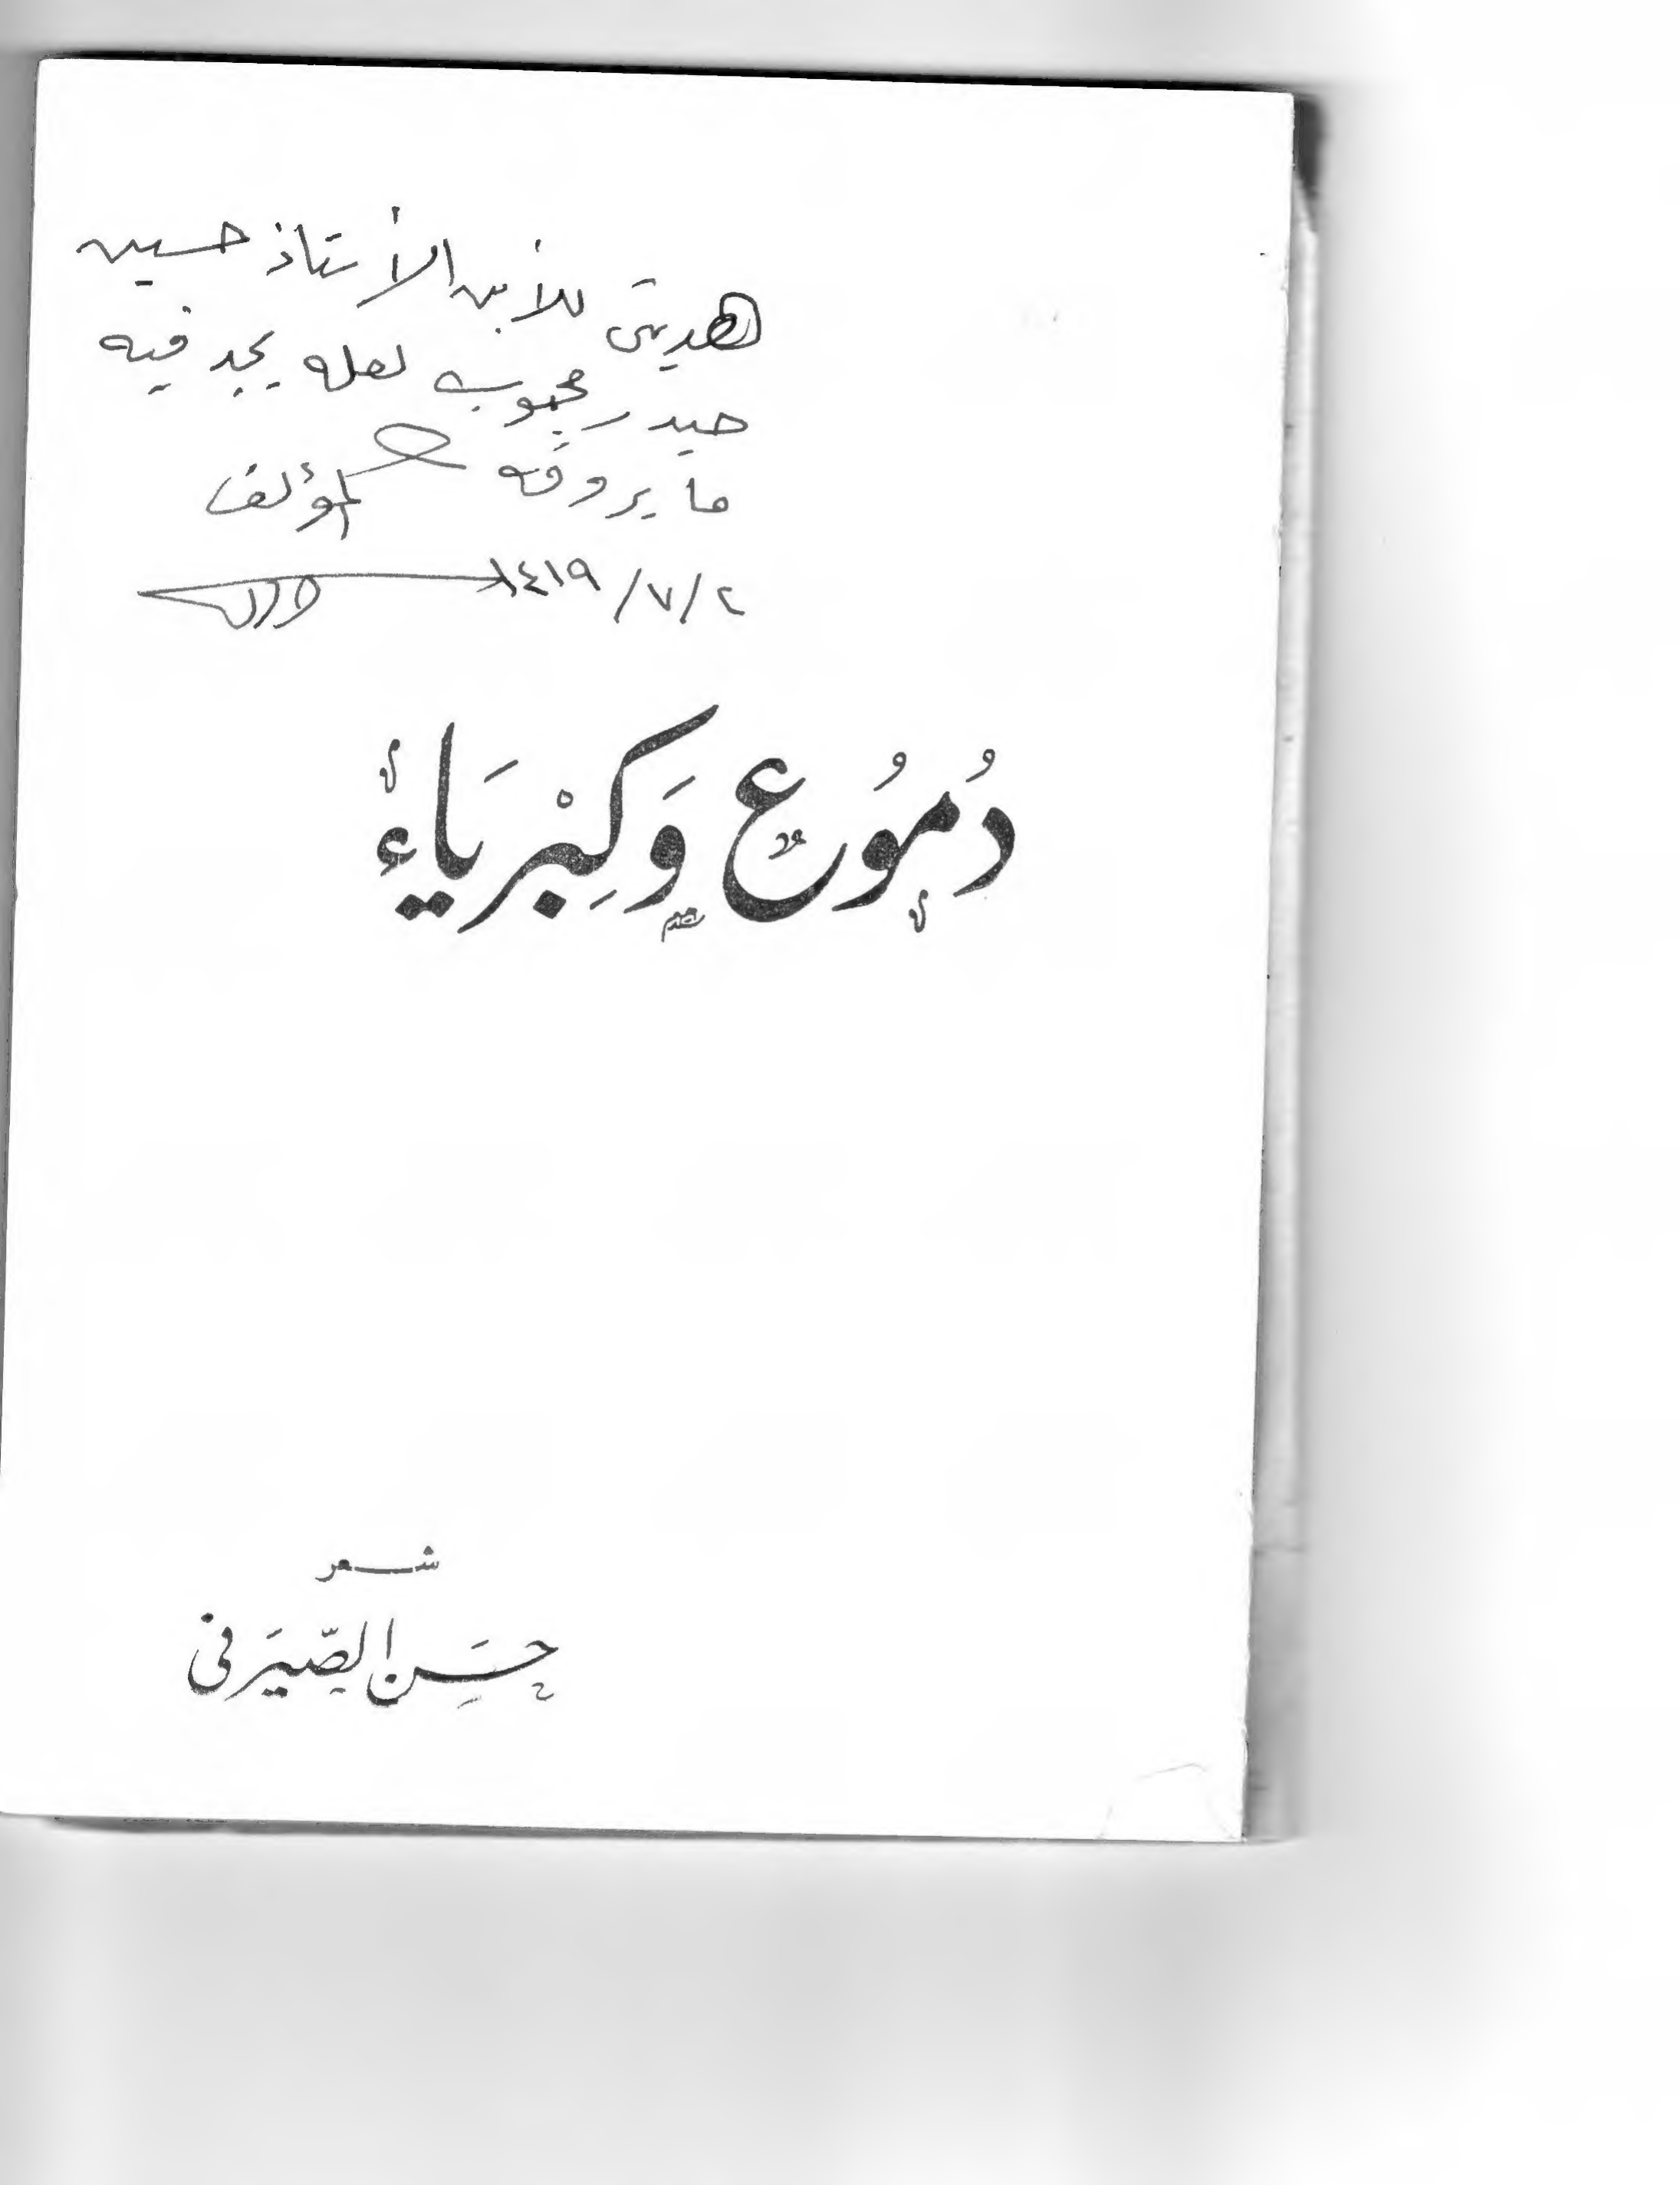 هديتي للأبن الأستاذ حسين
حيدر محبوب لعله يجد فيه
ما يروقه المؤلف
٢/٧/١٤١٩
دُمُوع وَكِبْرِيَاءْ
شعر
حَسَن الصَّيرَفي